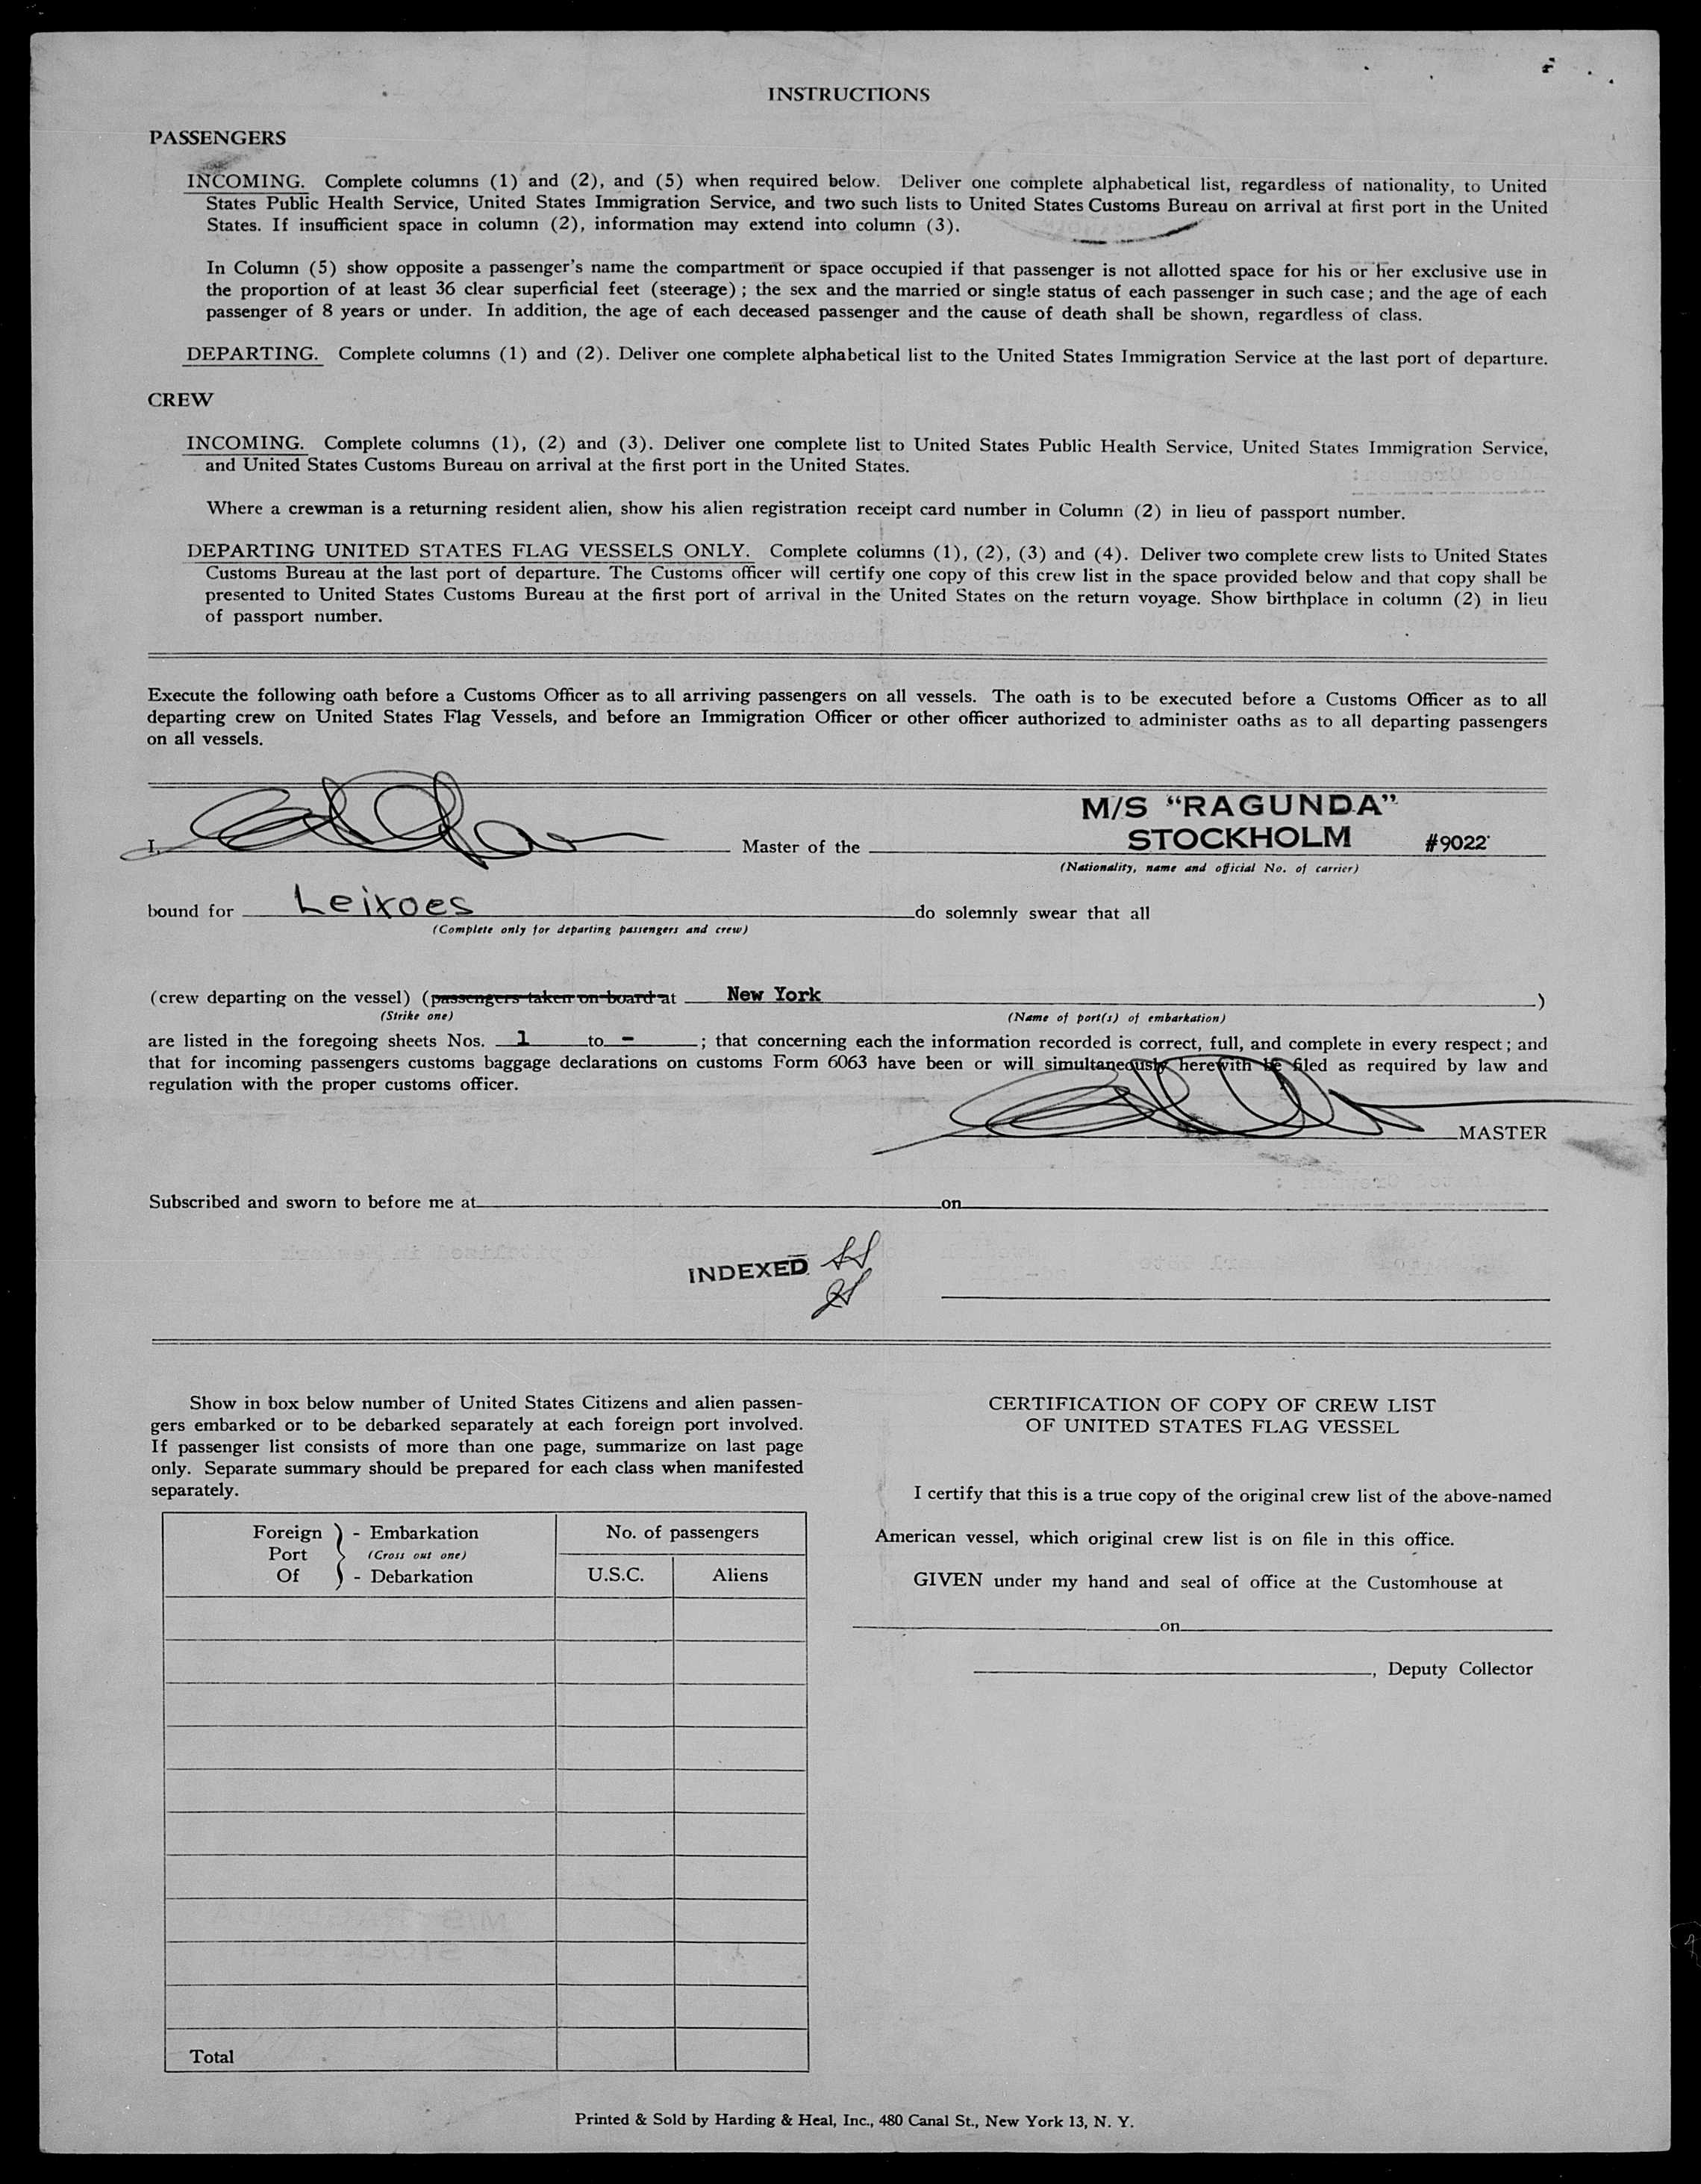 INSTRUCTIONS
PASSENGERS
INCOMING. Complete columns (1) and (2), and (5) when required below. Deliver one complete alphabetical list, regardless of nationality, to United
States Public Health Service, United States Immigration Service, and two such lists to United States Customs Bureau on arrival at first port in the United
States. If insufficient space in column (2), information may extend into column (3).
In Column (5) show opposite a passenger's name the compartment or space occupied if that passenger is not allotted space for his or her exclusive use in
the proportion of at least 36 clear superficial feet (steerage); the sex and the married or single status of each passenger in such case; and the age of each
passenger of 8 years or under. In addition, the age of each deceased passenger and the cause of death shall be shown, regardless of class.
DEPARTING. Complete columns (1) and (2). Deliver one complete alphabetical list to the United States Immigration Service at the last port of departure.
CREW
INCOMING. Complete columns (1), (2) and (3). Deliver one complete list to United States Public Health Service, United States Immigration Service,
and United States Customs Bureau on arrival at the first port in the United States.
Where a crewman is a returning resident alien, show his alien registration receipt card number in Column (2) in lieu of passport number.
DEPARTING UNITED STATES FLAG VESSELS ONLY. Complete columns (1), (2), (3) and (4). Deliver two complete crew lists to United States
Customs Bureau at the last port of departure. The Customs officer will certify one copy of this crew list in the space provided below and that copy shall be
presented to United States Customs Bureau at the first port of arrival in the United States on the return voyage. Show birthplace in column (2) in lieu
of passport number.
Execute the following oath before a Customs Officer as to all arriving passengers on all vessels. The oath is to be executed before a Customs Officer as to all
departing crew on United States Flag Vessels, and before an Immigration Officer or other officer authorized to administer oaths as to all departing passengers
on all vessels.
M/S "RAGUNDA"
I, Master of the STOCKHOLM #9022
(Nationality, name and official No. of carrier)
bound for Leixoes do solemnly swear that all
(Complete only for departing passengers and crew)
(crew departing on the vessel) (passengers taken on board at New York )
(Strike one) (Name of port(s) of embarkation)
are listed in the foregoing sheets Nos. 1 to - ; that concerning each the information recorded is correct, full, and complete in every respect; and
that for incoming passengers customs baggage declarations on customs Form 6063 have been or will simultaneously herewith be filed as required by law and
regulation with the proper customs officer.
MASTER
Subscribed and sworn to before me at on
INDEXED
Show in box below number of United States Citizens and alien passen-
gers embarked or to be debarked separately at each foreign port involved.
If passenger list consists of more than one page, summarize on last page
only. Separate summary should be prepared for each class when manifested
separately.
Foreign Port Of } - Embarkation (Cross out one) - Debarkation
No. of passengers
U.S.C. Aliens
Total
CERTIFICATION OF COPY OF CREW LIST
OF UNITED STATES FLAG VESSEL
I certify that this is a true copy of the original crew list of the above-named
American vessel, which original crew list is on file in this office.
GIVEN under my hand and seal of office at the Customhouse at
on
, Deputy Collector
Printed & Sold by Harding & Heal, Inc., 480 Canal St., New York 13, N. Y.